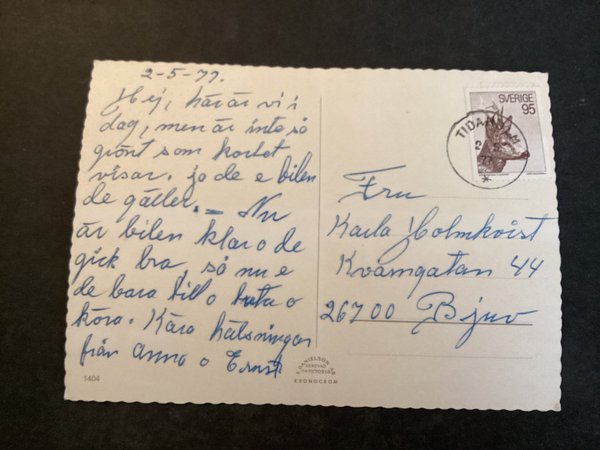 2-5-77.
Hej, här är vi i
dag, men är inte så
grönt som kortet
visar. jo de e bilen
de gäller. — Nu
är bilen klar o de
gick bra, så nu e
de bara till o o
köra. Kära hälsningar
från Anna o Ernst
1404
SVERIGE
95
TIDAHOLM
2 5
77
Fru
Karla Holmkvist
Kvarngatan 44
26700 Bjuv
DANIELSON
KRONOCROM